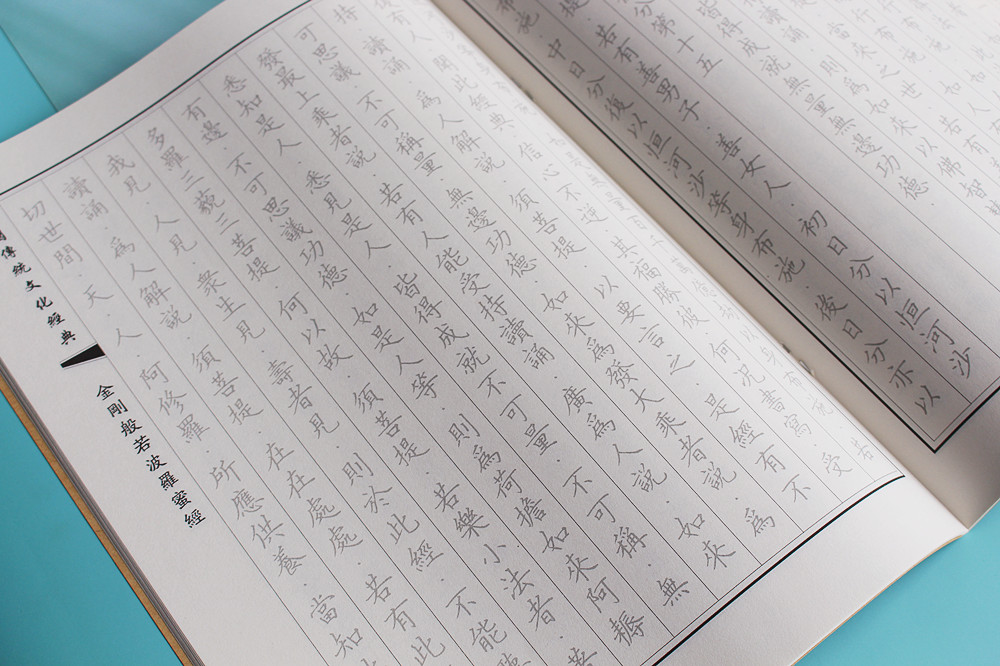 皆得成就無量無邊功德·
第十五
提·若有善男子·善女人·初日分以恒河沙
布施·中日分後以恒河沙等身布施·後日分亦以
人·聞此經典·信心不逆·其福勝彼·何況書寫·受
持·讀誦·爲人解說·須菩提·以要言之·是經有不
可思議·不可稱量·無邊功德·如來爲發大乘者說·爲
發最上乘者說·若有人能受持讀誦·廣爲人說·如來
悉知是人·悉見是人·皆得成就不可量·不可稱·無
有邊·不可思議功德·如是人等·則爲荷擔如來阿耨
多羅三藐三菩提·何以故·須菩提·若樂小法者·著
我見·人見·衆生見·壽者見·則於此經·不能聽
讀誦·爲人解說·須菩提·在在處處·若有此
切世間·天·人·阿修羅·所應供養·當知
傳統文化經典
金剛般若波羅蜜經